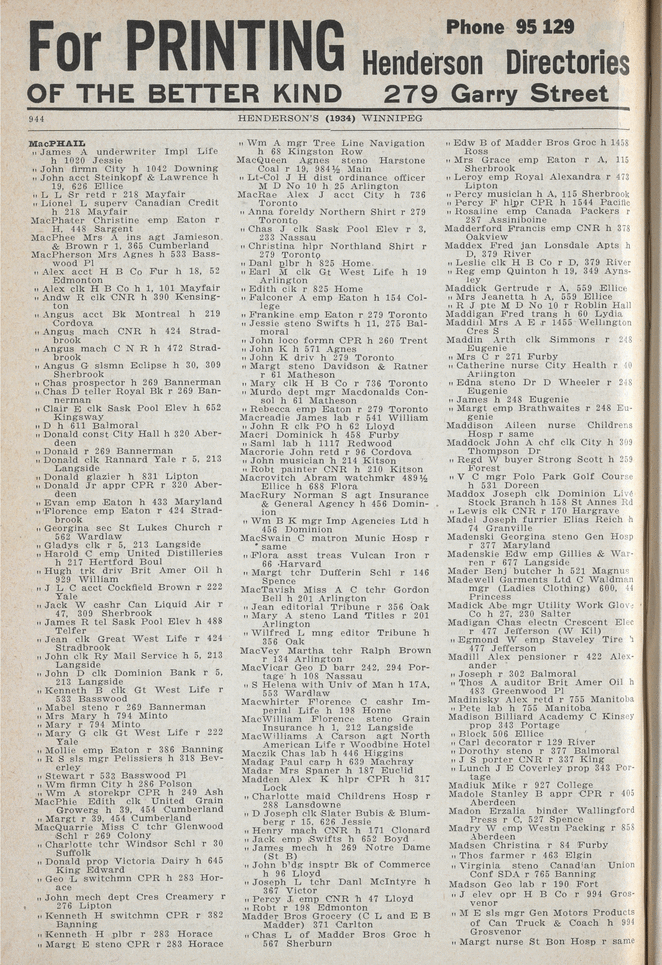 For PRINTING
OF THE BETTER KIND
Phone 95 129
Henderson Directories
279 Garry Street
944
HENDERSON'S (1934) WINNIPEG
MacPHAIL
" James A underwriter Impl Life
h 1020 Jessie
" John firmn City h 1042 Downing
" John acct Steinkopf & Lawrence h
19, 626 Ellice
" L L Sr retd r 218 Mayfair
" Lionel L superv Canadian Credit
h 218 Mayfair
MacPhater Christine emp Eaton r
H, 448 Sargent
MacPhee Mrs A ins agt Jamieson
& Brown r 1, 365 Cumberland
MacPherson Mrs Agnes h 533 Bass-
wood Pl
" Alex acct H B Co Fur h 18, 52
Edmonton
" Alex clk H B Co h 1, 101 Mayfair
" Andw R clk CNR h 390 Kensing-
ton
" Angus acct Bk Montreal h 219
Cordova
" Angus mach CNR h 424 Strad-
brook
" Angus mach C N R h 472 Strad-
brook
" Angus G slsmn Eclipse h 30, 309
Sherbrook
" Chas prospector h 269 Bannerman
" Chas D teller Royal Bk r 269 Ban-
nerman
" Clair E clk Sask Pool Elev h 652
Kingsway
" D h 611 Balmoral
" Donald const City Hall h 320 Aber-
deen
" Donald r 269 Bannerman
" Donald clk Rannard Yale r 5, 213
Langside
" Donald glazier h 831 Lipton
" Donald Jr appr CPR r 320 Aber-
deen
" Evan emp Eaton h 433 Maryland
" Florence emp Eaton r 424 Strad-
brook
" Georgina sec St Lukes Church r
562 Wardlaw
" Gladys clk r 5, 213 Langside
" Harold C emp United Distilleries
h 217 Hertford Boul
" Hugh trk driv Brit Amer Oil h
929 William
" J L C acct Cockfield Brown r 222
Yale
" Jack W cashr Can Liquid Air r
47, 309 Sherbrook
" James R tel Sask Pool Elev h 488
Telfer
" Jean clk Great West Life r 424
Stradbrook
" John clk Ry Mail Service h 5, 213
Langside
" John D clk Dominion Bank r 5,
213 Langside
" Kenneth B clk Gt West Life r
533 Basswood
" Mabel steno r 269 Bannerman
" Mrs Mary h 794 Minto
" Mary r 794 Minto
" Mary G clk Gt West Life r 222
Yale
" Mollie emp Eaton r 386 Banning
" R S sls mgr Pelissiers h 318 Bev-
erley
" Stewart r 533 Basswood Pl
" Wm firmn City h 286 Polson
" Wm A storekpr CPR h 249 Ash
MacPhie Edith clk United Grain
Growers h 39, 454 Cumberland
" Margt r 39, 454 Cumberland
MacQuarrie Miss C tchr Glenwood
Schl r 269 Colony
" Charlotte tchr Windsor Schl r 30
Suffolk
" Donald prop Victoria Dairy h 645
King Edward
" Geo L switchmn CPR h 283 Hor-
ace
" John mech dept Cres Creamery r
276 Lipton
" Kenneth H switchmn CPR r 382
Banning
" Kenneth H plbr r 283 Horace
" Margt E steno CPR r 283 Horace
" Wm A mgr Tree Line Navigation
h 68 Kingston Row
MacQueen Agnes steno Harstone
Coal r 19, 984½ Main
" Lt-Col J H dist ordnance officer
M D No 10 h 25 Arlington
MacRae Alex J acct City h 736
Toronto
" Anna foreldy Northern Shirt r 279
Toronto
" Chas J clk Sask Pool Elev r 3,
233 Nassau
" Christina hlpr Northland Shirt r
279 Toronto
" Danl plbr h 825 Home
" Earl M clk Gt West Life h 19
Arlington
" Edith clk r 825 Home
" Falconer A emp Eaton h 154 Col-
lege
" Frankine emp Eaton r 279 Toronto
" Jessie steno Swifts h 11, 275 Bal-
moral
" John loco formn CPR h 260 Trent
" John K h 571 Agnes
" John K driv h 279 Toronto
" Margt steno Davidson & Ratner
r 61 Matheson
" Mary clk H B Co r 736 Toronto
" Murdo dept mgr Macdonalds Con-
sol h 61 Matheson
" Rebecca emp Eaton r 279 Toronto
Macreadie James lab r 541 William
" John R clk PO h 62 Lloyd
Macri Dominick h 458 Furby
" Saml lab h 1117 Redwood
Macrorie John retd r 96 Cordova
" John musician h 214 Kitson
" Robt painter CNR h 210 Kitson
Macrovitch Abram watchmkr 489½
Ellice h 688 Flora
MacRury Norman S agt Insurance
& General Agency h 456 Domin-
ion
" Wm B K mgr Imp Agencies Ltd h
456 Dominion
MacSwain C matron Munic Hosp r
same
" Flora asst treas Vulcan Iron r
66 Harvard
" Margt tchr Dufferin Schl r 146
Spence
MacTavish Miss A C tchr Gordon
Bell h 201 Arlington
" Jean editorial Tribune r 356 Oak
" Mary A steno Land Titles r 201
Arlington
" Wilfred L mng editor Tribune h
356 Oak
MacVey Martha tchr Ralph Brown
r 134 Arlington
MacVicar Geo D barr 242, 294 Por-
tage h 108 Nassau
" S Helena with Univ of Man h 17A,
553 Wardlaw
Macwhirter Florence C cashr Im-
perial Life h 198 Home
MacWilliam Florence steno Grain
Insurance h 1, 212 Langside
MacWilliams A Carson agt North
American Life r Woodbine Hotel
Maczik Chas lab h 446 Higgins
Madag Paul carp h 639 Machray
Madar Mrs Spaner h 187 Euclid
Madden Alex K hlpr CPR h 317
Lock
" Charlotte maid Childrens Hosp r
288 Lansdowne
" D Joseph clk Slater Bubis & Blum-
berg r 15, 626 Jessie
" Henry mach CNR h 171 Clonard
" Jack emp Swifts h 652 Boyd
" James mech h 269 Notre Dame
(St B)
" John b'dg insptr Bk of Commerce
h 96 Lloyd
" Joseph L tchr Danl McIntyre h
367 Victor
" Percy J emp CNR h 47 Lloyd
" Robt r 198 Edmonton
Madder Bros Grocery (C L and E B
Madder) 371 Carlton
" Chas L of Madder Bros Groc h
567 Sherburn
" Edw B of Madder Bros Groc h 1458
Ross
" Mrs Grace emp Eaton r A, 115
Sherbrook
" Leroy emp Royal Alexandra r 472
Lipton
" Percy musician h A, 115 Sherbrook
" Percy F hlpr CPR h 1544 Pacific
" Rosaline emp Canada Packers r
287 Assiniboine
Madderford Francis emp CNR h 378
Oakview
Maddex Fred jan Lonsdale Apts h
D, 379 River
" Leslie clk H B Co r D, 379 River
" Reg emp Quinton h 19, 349 Ayns-
ley
Maddick Gertrude r A, 559 Ellice
" Mrs Jeanetta h A, 559 Ellice
" R J pte M D No 10 r Roblin Hall
Maddigan Fred trans h 60 Lydia
Maddill Mrs A E r 1455 Wellington
Cres S
Maddin Arth clk Simmons r 248
Eugenie
" Mrs C r 271 Furby
" Catherine nurse City Health r 40
Arlington
" Edna steno Dr D Wheeler r 248
Eugenie
" James h 248 Eugenie
" Margt emp Brathwaites r 248 Eu-
genie
Maddison Aileen nurse Childrens
Hosp r same
Maddock John A chf clk City h 309
Thompson Dr
" Regd W buyer Strong Scott h 259
Forest
" V C mgr Polo Park Golf Course
h 531 Doreen
Maddox Joseph clk Dominion Live
Stock Branch h 158 St Annes Rd
" Lewis clk CNR r 170 Hargrave
Madel Joseph furrier Elias Reich h
74 Granville
Madenski Georgina steno Gen Hosp
r 377 Maryland
Madenskie Edw emp Gillies & War-
ren r 677 Langside
Mader Benj butcher h 521 Magnus
Madewell Garments Ltd C Waldman
mgr (Ladies Clothing) 600, 44
Princess
Madick Abe mgr Utility Work Glove
Co h 27, 230 Salter
Madigan Chas electn Crescent Elec
r 477 Jefferson (W Kil)
" Egmond W emp Staveley Tire h
477 Jefferson
Madill Alex pensioner r 422 Alex-
ander
" Joseph r 302 Balmoral
" Thos A auditor Brit Amer Oil h
483 Greenwood Pl
Madinisky Alex retd r 755 Manitoba
" Pete lab h 755 Manitoba
Madison Billiard Academy C Kinsey
prop 343 Portage
" Block 506 Ellice
" Carl decorator r 129 River
" Dorothy steno r 377 Balmoral
" J S porter CNR r 337 King
" Lunch J E Coverley prop 343 Por-
tage
Madiuk Mike r 927 College
Madole Stanley B appr CPR r 405
Aberdeen
Madon Erzalia binder Wallingford
Press r C, 527 Spence
Madry W emp Westn Packing r 858
Aberdeen
Madsen Christina r 84 Furby
" Thos farmer r 463 Elgin
" Virginia steno Canadian Union
Conf SDA r 765 Banning
Madson Geo lab r 190 Fort
" J elev opr H B Co r 994 Gros-
venor
" M E sls mgr Gen Motors Products
of Can Truck & Coach h 994
Grosvenor
" Margt nurse St Bon Hosp r same